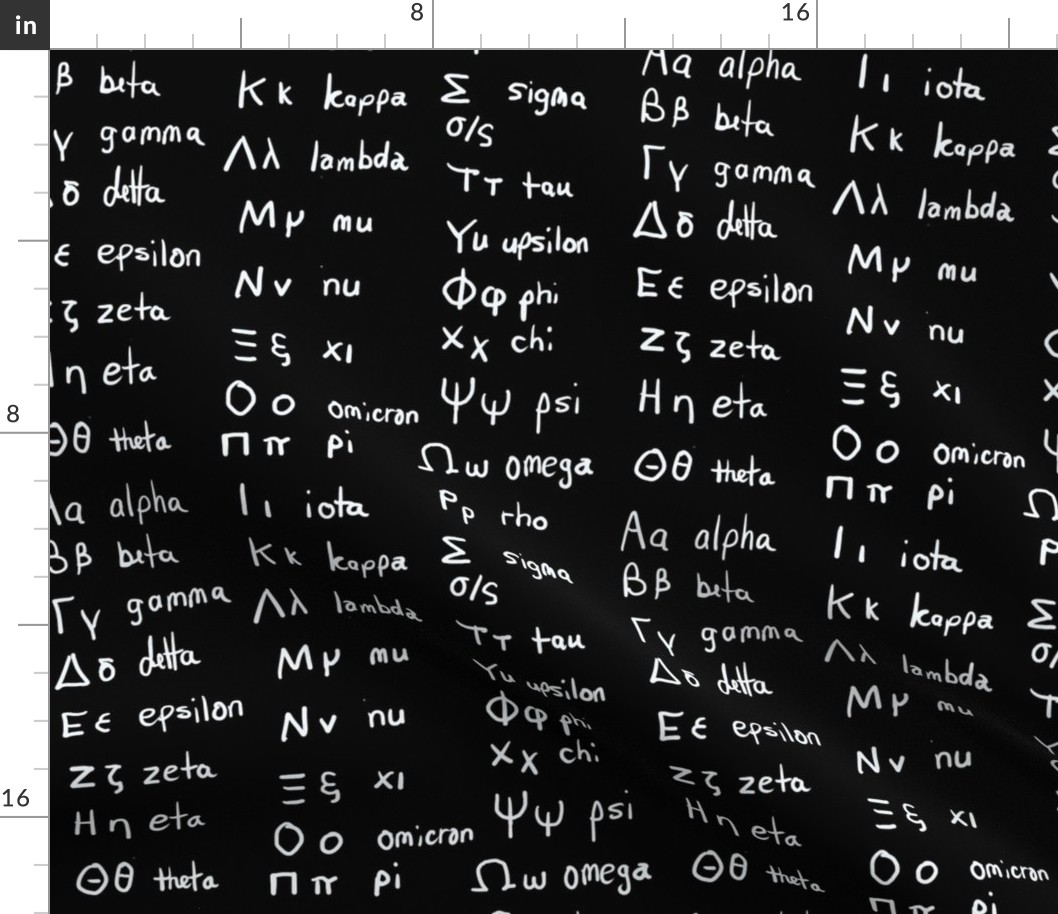 in
8
16
8
16
β beta
γ gamma
δ delta
ε epsilon
ζ zeta
η eta
Θθ theta
a alpha
Ββ beta
Γγ gamma
Δδ delta
Εε epsilon
Ζζ zeta
Ηη eta
Θθ theta
Κκ kappa
Λλ lambda
Μμ mu
Νν nu
Ξξ xi
Οο omicron
Ππ pi
Ιι iota
Κκ kappa
Λλ lambda
Μμ mu
Νν nu
Ξξ xi
Οο omicron
Ππ pi
Σ sigma
σ/ς
Ττ tau
Υυ upsilon
Φφ phi
Χχ chi
Ψψ psi
Ωω omega
Ρρ rho
Σ sigma
σ/ς
Ττ tau
Υυ upsilon
Φφ phi
Χχ chi
Ψψ psi
Ωω omega
Αα alpha
Ββ beta
Γγ gamma
Δδ delta
Εε epsilon
Ζζ zeta
Ηη eta
Θθ theta
Αα alpha
Ββ beta
Γγ gamma
Δδ delta
Εε epsilon
Ζζ zeta
Ηη eta
Θθ theta
Ιι iota
Κκ kappa
Λλ lambda
Μμ mu
Νν nu
Ξξ xi
Οο omicron
Ππ pi
Ιι iota
Κκ kappa
Λλ lambda
Μμ mu
Νν nu
Ξξ xi
Οο omicron
Ππ pi
Ψ
Ω
Σ
σ/